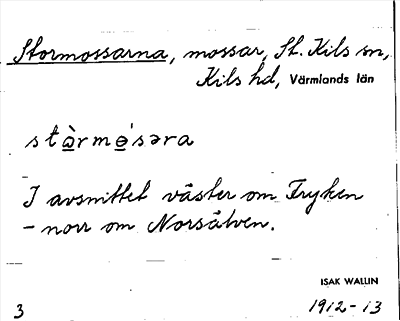 Stormossarna, mossar, St. Kils sn,
Kils hd, Värmlands län
stàrmo̲ˊsəra
I avsnittet väster om Fryken
- norr om Norsälven.
ISAK WALLIN
3 1912-13